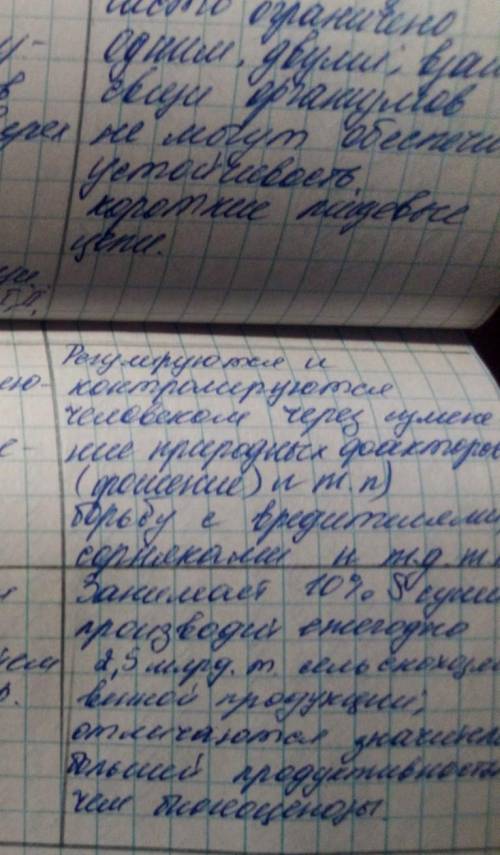 часто ограничено
одним, двумя; взаи
связи организмов
не могут обеспечи
устойчивость,
короткие пищевые
цепи.
Регулируются и
контролируются
человеком через измене
ние природных факторов
(орошение) и т.п)
борьбу с вредителями,
сорняками и т.д. т.
Занимает 10% S суши
производит ежегодно
2,5 млрд. т. сельскохозяй
венной продукции;
отличаются значител
большей продуктивность
чем биоценозы.